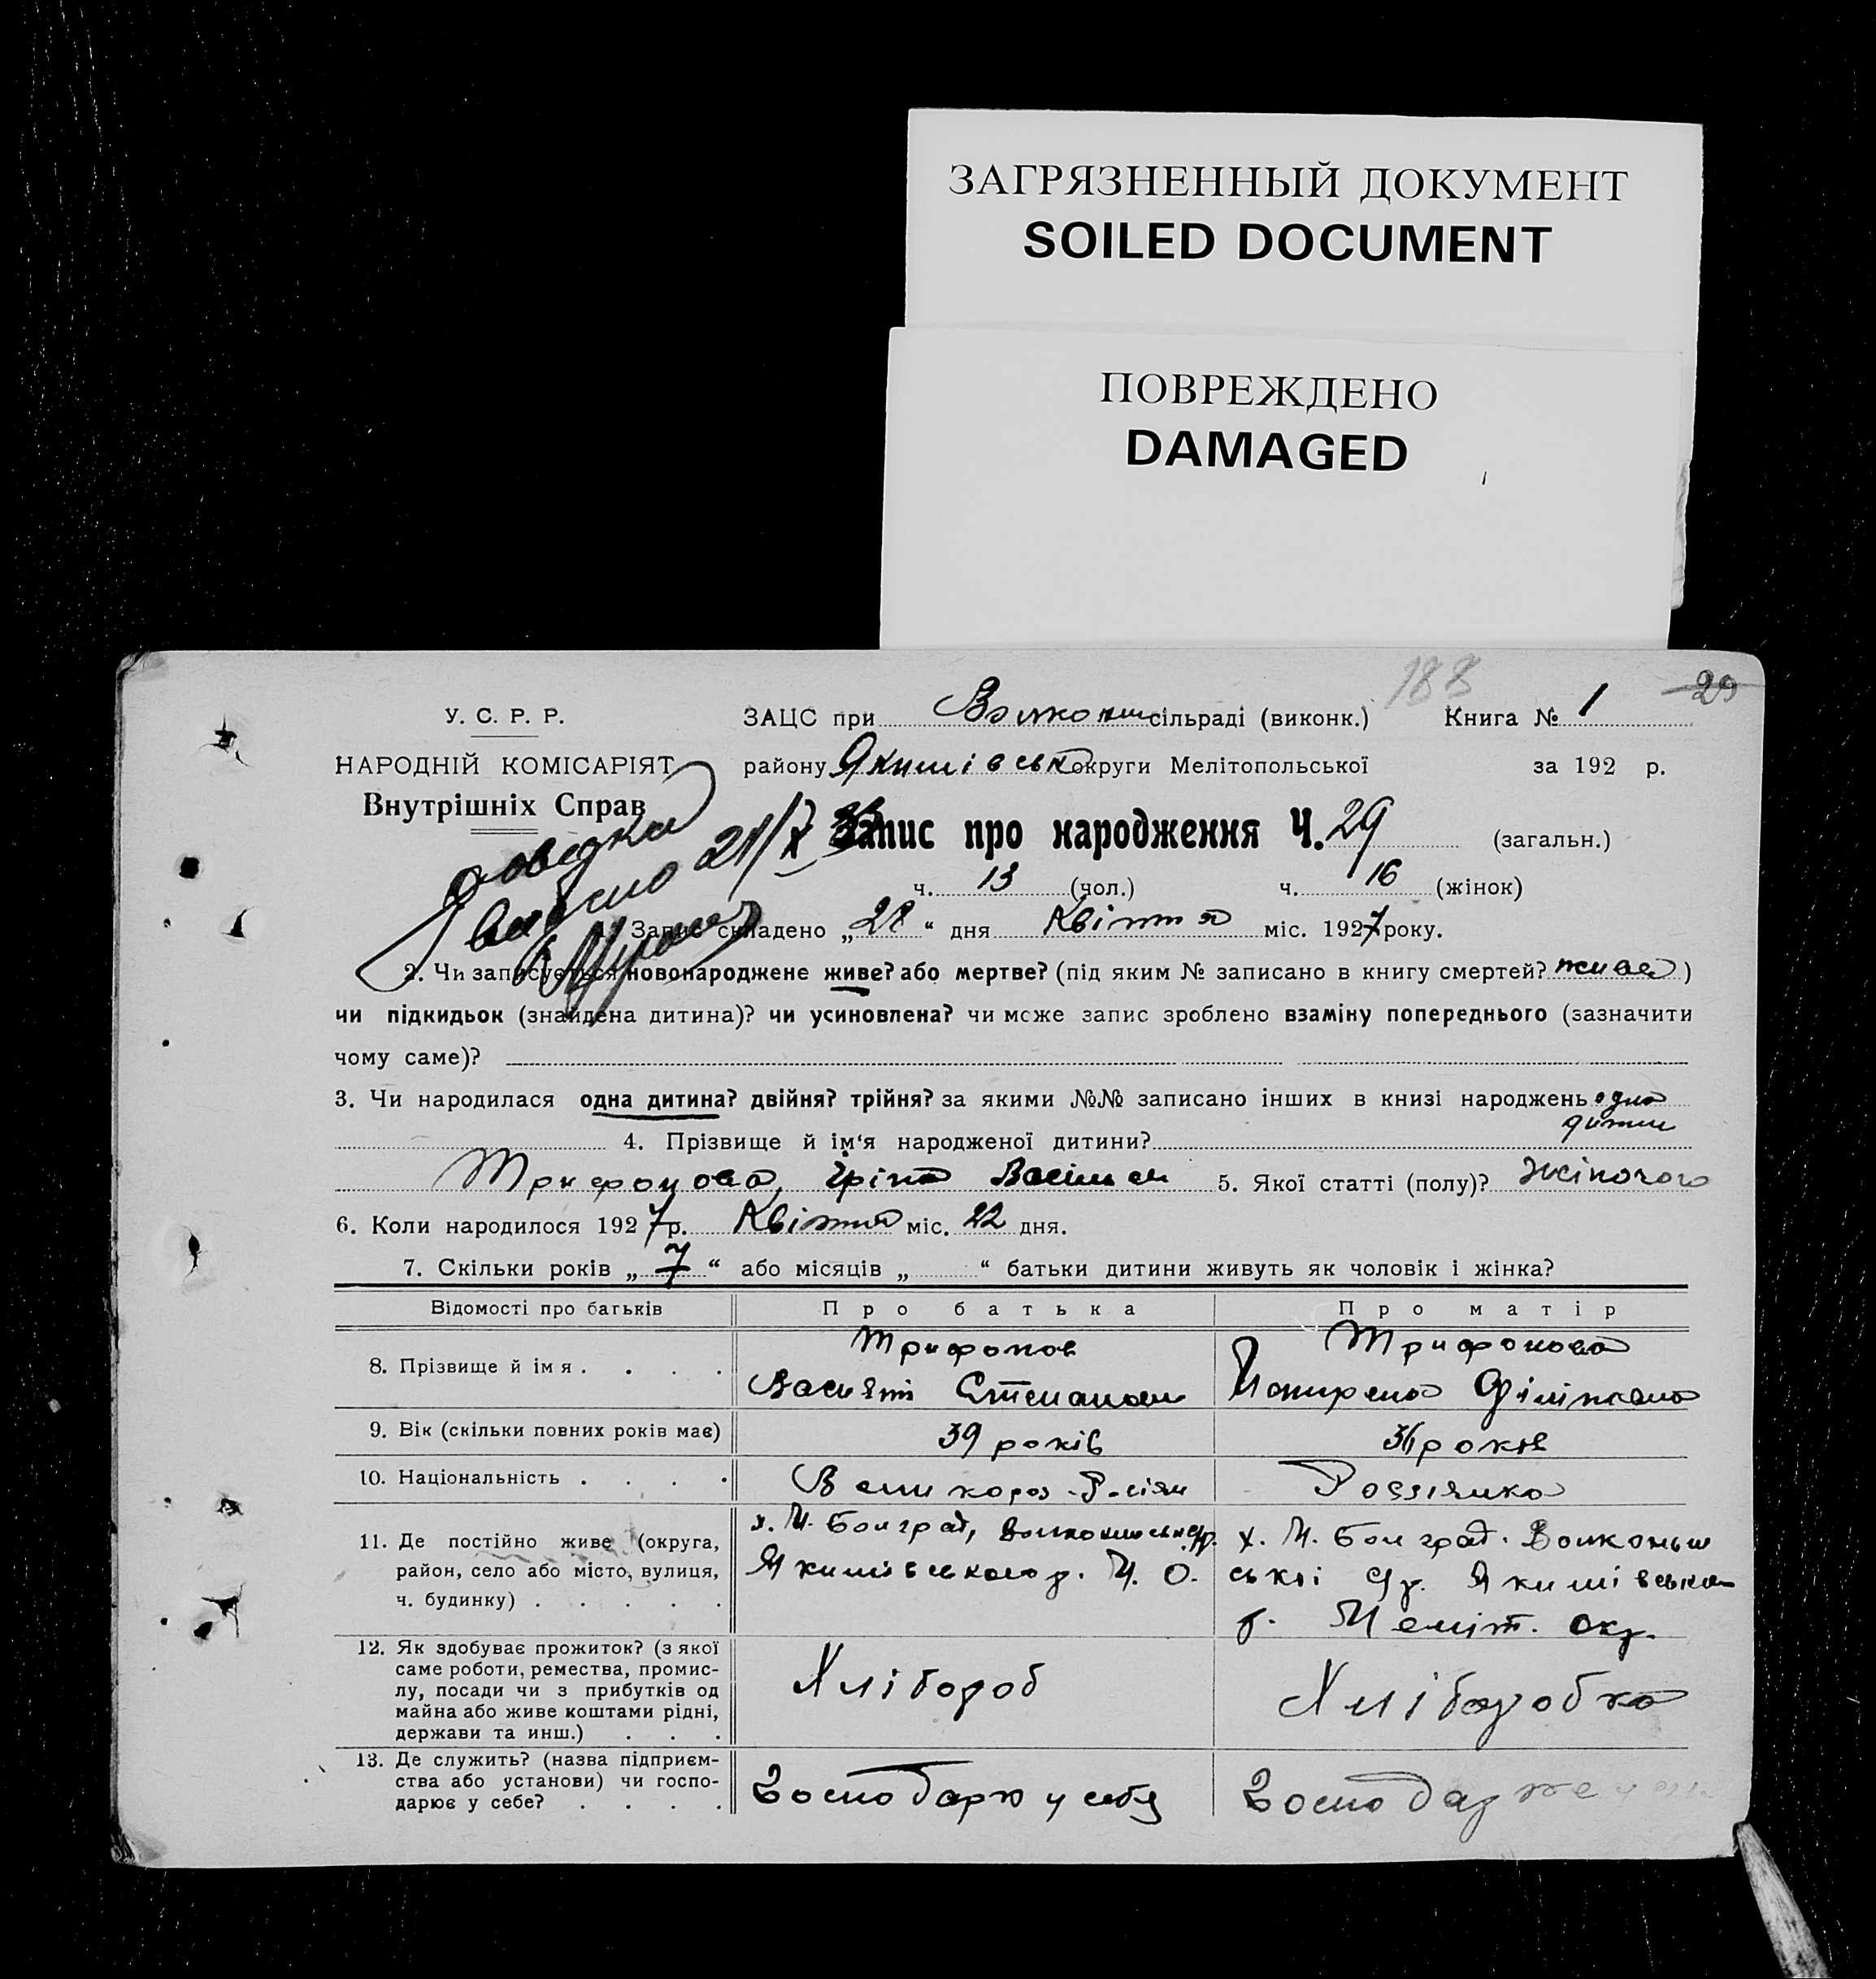 ЗАГРЯЗНЕННЫЙ ДОКУМЕНТ
SOILED DOCUMENT
ПОВРЕЖДЕНО
DAMAGED
188
29
У. С. Р. Р.
ЗАЦС при сільраді (виконк.) Книга № 1
НАРОДНІЙ КОМІСАРІЯТ
району Якимівськ округи Мелітопольської за 192 р.
Внутрішніх Справ
Запис про народження Ч. 29 (загальн.)
ч. 13 (чол.) ч. 16 (жінок)
1. Запис складено „ “ дня Квітня міс. 1927 року.
2. Чи записується новонароджене живе? або мертве? (під яким № записано в книгу смертей? живе)
чи підкидьок (знайдена дитина)? чи усиновлена? чи може запис зроблено взаміну попереднього (зазначити
чому саме)?
3. Чи народилася одна дитина? двійня? трійня? за якими №№ записано інших в книзі народжень одна
4. Прізвище й ім‘я народженої дитини?
Трифонова 5. Якої статті (полу)? Жіночого
6. Коли народилося 1927 р. Квітня міс. 22 дня.
7. Скільки років „ 7 “ або місяців „ “ батьки дитини живуть як чоловік і жінка?
Відомості про батьків Про батька Про матір
8. Прізвище й імя . . . .
Трифонов
Трифонова
9. Вік (скільки повних років має) 39 років 36 років
10. Національність . . . .
11. Де постійно живе (округа,
район, село або місто, вулиця,
ч. будинку) . . . . .
х. М. Болград,
х. М. Болград.
Меліт. окр.
12. Як здобуває прожиток? (з якої
саме роботи, ремества, промис-
лу, посади чи з прибутків од
майна або живе коштами рідні,
держави та инш.) . . .
Хлібороб
Хлібаробка
13. Де служить? (назва підприєм-
ства або установи) чи госпо-
дарює у себе? . . . .
Господарю у себя